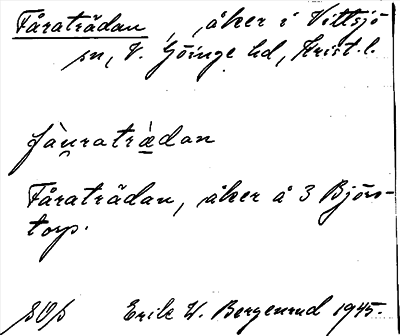 Fåraträdan, åker i Vittsjö
sn, V. Göinge hd, Krist. l.
fȧu̯raträ̀dan
Fåraträdan, åker å 3 Björs-
torp.
Erik W. Bergenrud 1945.